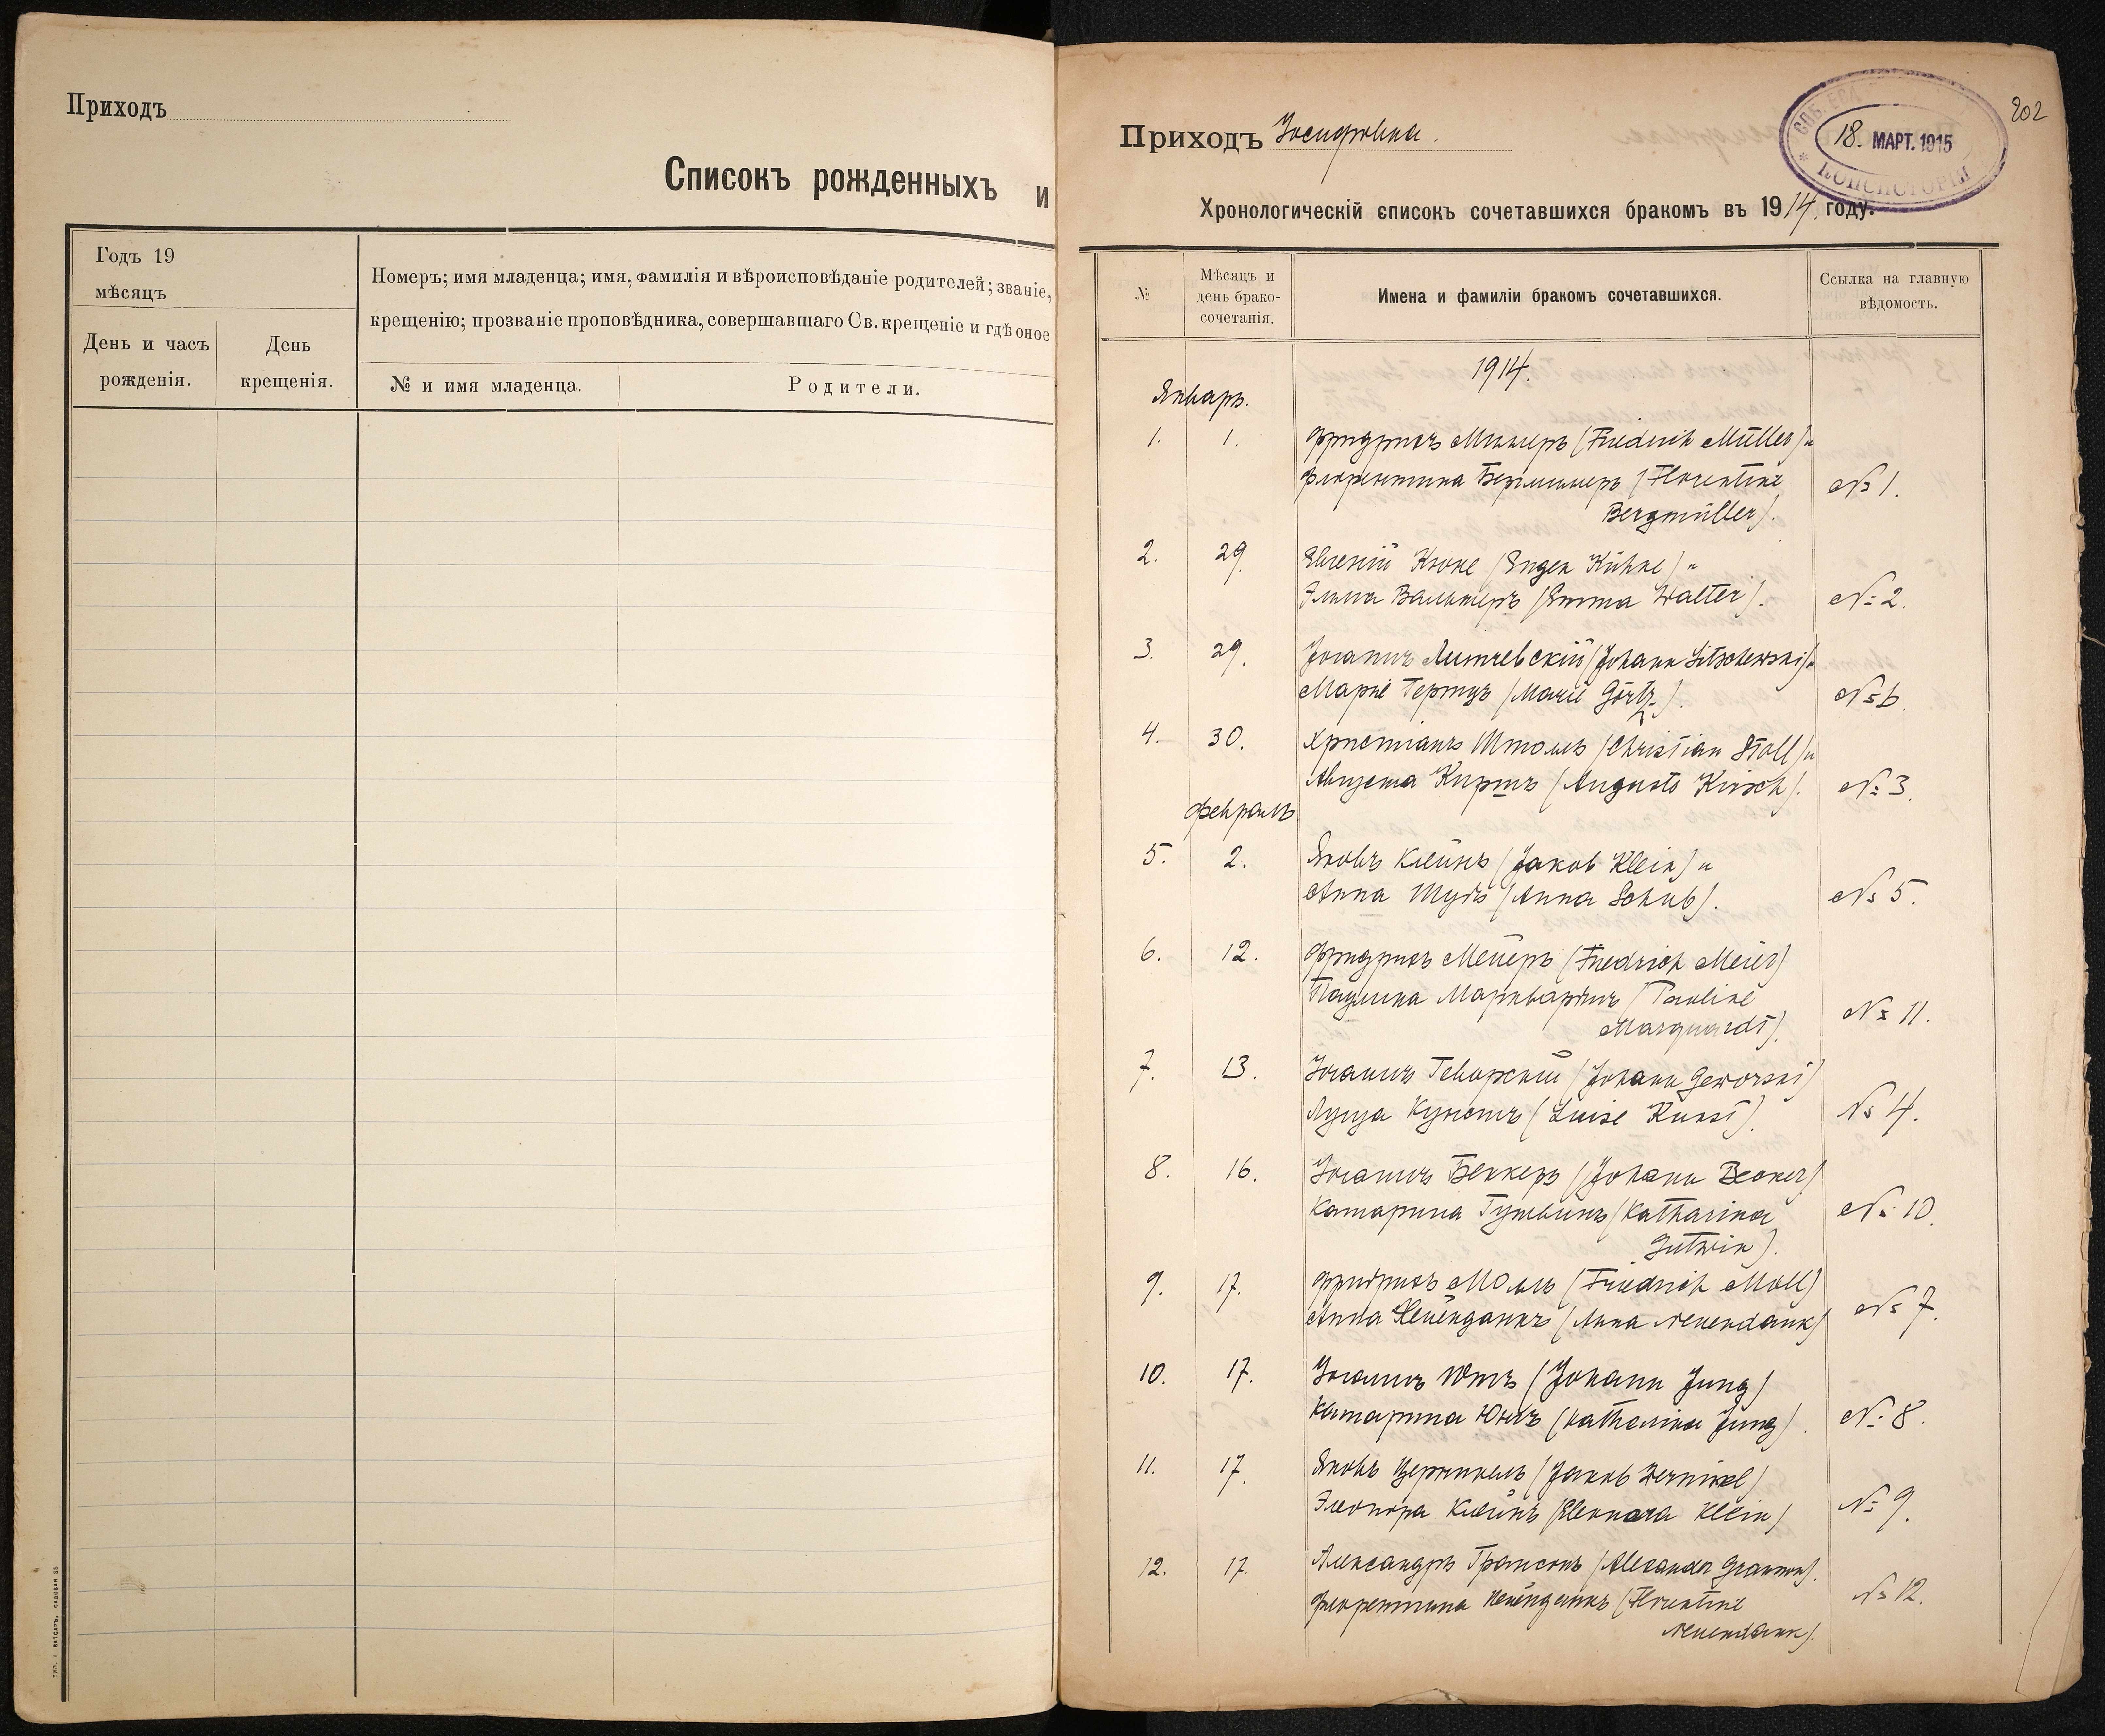 Приходъ
Списокъ рожденныхъ и
Годъ 19
мѣсяцъ
День и часъ
рожденія.
День
крещенія.
Номеръ; имя младенца; имя, фамилія и вѣроисповѣданіе родителей; званіе,
крещенію; прозваніе проповѣдника, совершавшаго Св. крещеніе и гдѣ оное
№ и имя младенца.
Родители.
202
Приходъ Іосифовка.
СПБ. ЕВ.
18. МАРТ. 1915
КОНСИСТОРІИ
Хронологическій списокъ сочетавшихся бракомъ въ 1914 году.
№
Мѣсяцъ и
день брако-
сочетанія.
Имена и фамиліи бракомъ сочетавшихся.
Ссылка на главную
вѣдомость.
1914.
Январь.
1. 1. Фридрихъ Миллеръ (Friedrich Müller) и
Флорентина Бергмиллеръ (Florentine № 1.
Bergmüller).
2. 29. Евгеній Кюне (Eugen Kühne) и
Эмма Вальтеръ (Emma Walter). № 2.
3. 29. Іоганнъ Литчевскій (Johann Litschewski) и
Маріе Гертцъ (Marie Görtz). № 6.
4. 30. Христіанъ Штоль (Christian Stoll) и
Августа Киршъ (Auguste Kirsch). № 3.
Февраль
5. 2. Яковъ Клейнъ (Jakob Klein) и
Анна Шубъ (Anna Schub). № 5.
6. 12. Фридрихъ Мейеръ (Friedrich Meier)
Паулина Марквардтъ (Pauline № 11.
Marquardt).
7. 13. Іоганнъ Геворскій (Johann Geworski)
Луиза Кунстъ (Luise Kunst). № 4.
8. 16. Іоганнъ Беккеръ (Johann Becker)
Катарина Гутвинъ (Katharina № 10.
Gutwin).
9. 17. Фридрихъ Моль (Friedrich Moll)
Анна Нейенданкъ (Anna Neuendank) № 7.
10. 17. Іоганнъ (Johann Jung)
Катарина Юнгъ (Katharina Jung). № 8.
11. 17. Яковъ Верникель (Jakob Wernikel)
Элеонора Клейнъ (Eleonora Klein) № 9.
12. 17. Александръ (Alexander
Флорентина Нейенданкъ (Florentine № 12.
Neuendank).